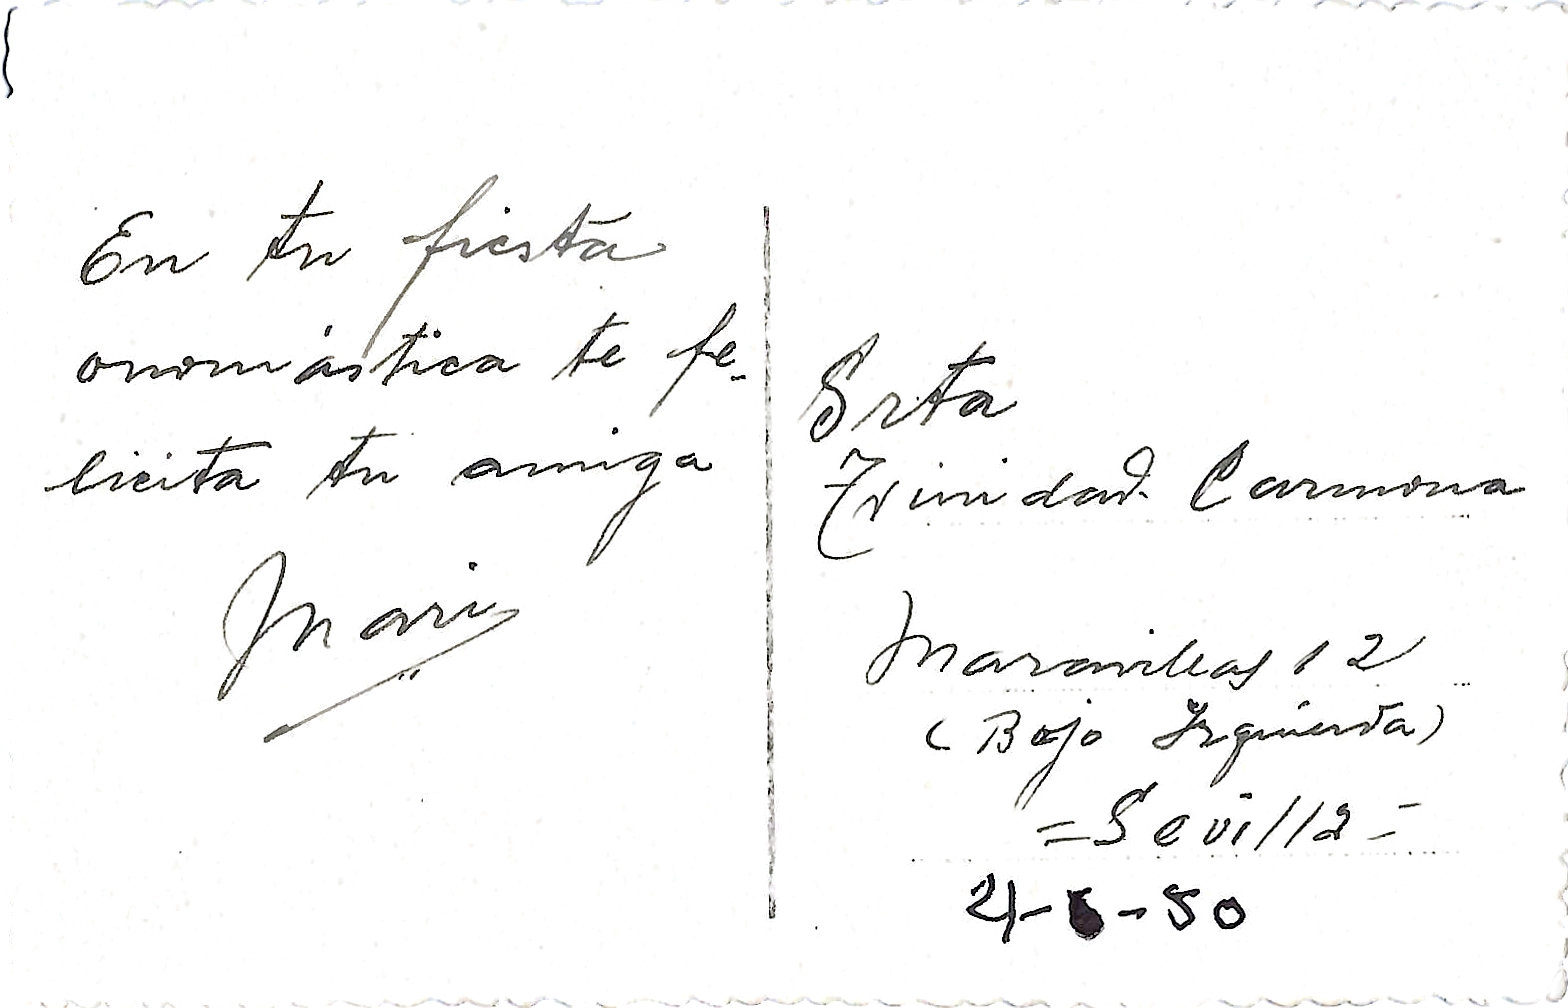 En tu fiesta
onomástica te fe-
licita tu amiga
Mari
Srta
Trinidad Carmona
Maravillas 12
(Bajo Izquierda)
=Sevilla=
4-6-50